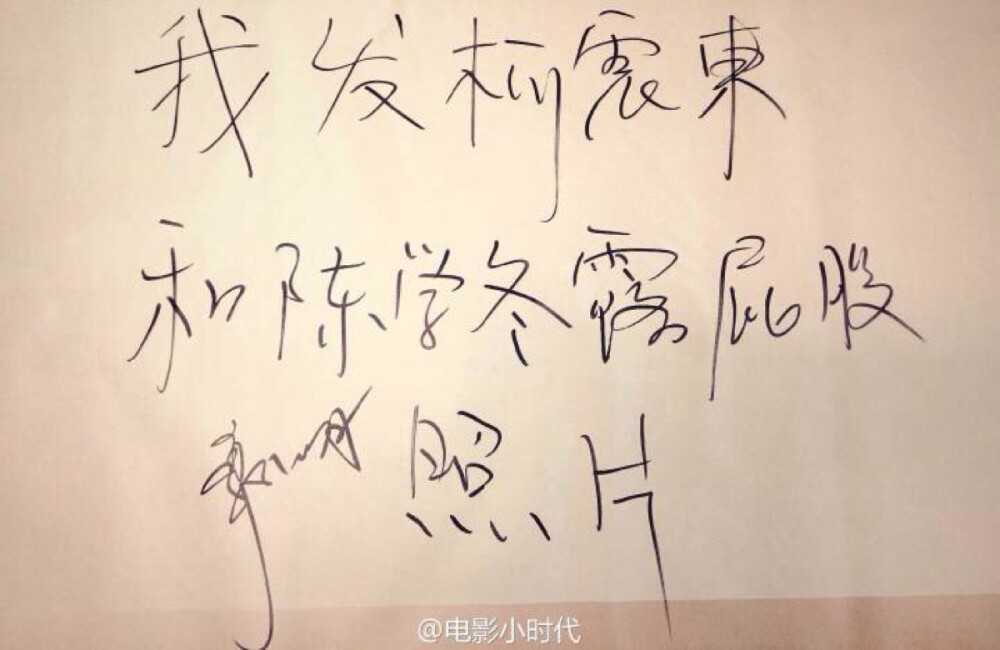 我发柯震東
和陈学冬露屁股
照片
@电影小时代